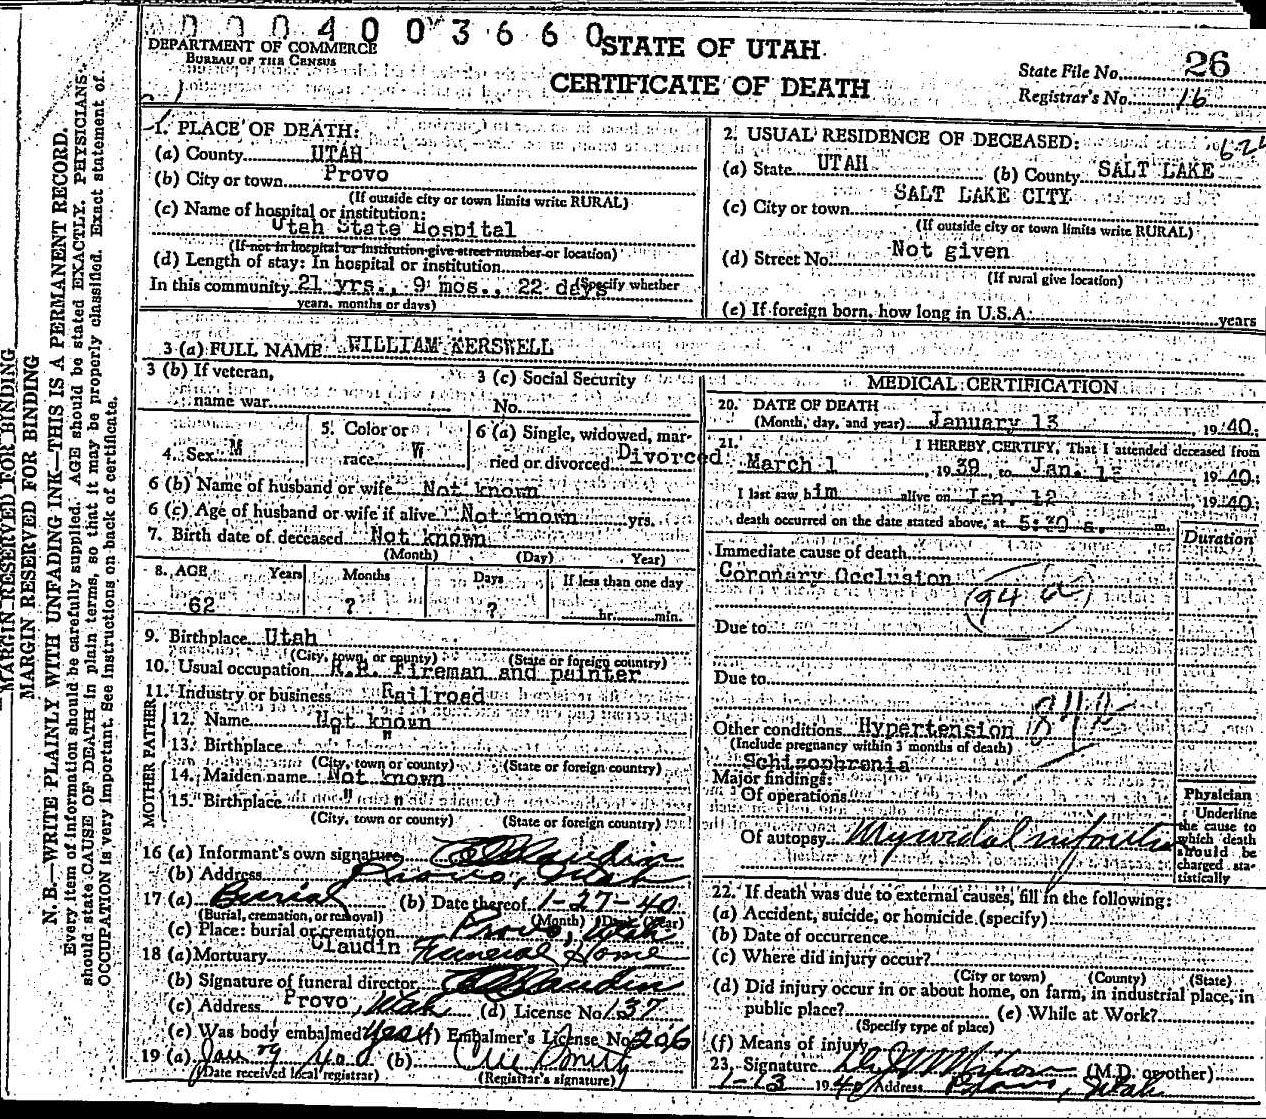 0 0 0 4 0 0 3 6 6 0
DEPARTMENT OF COMMERCE
BUREAU OF THE CENSUS
STATE OF UTAH
CERTIFICATE OF DEATH
State File No. 26
Registrar's No. 16
MARGIN RESERVED FOR BINDING
MARGIN RESERVED FOR BINDING
N. B.—WRITE PLAINLY WITH UNFADING INK—THIS IS A PERMANENT RECORD.
Every item of information should be carefully supplied. AGE should be stated EXACTLY. PHYSICIANS
should state CAUSE OF DEATH in plain terms, so that it may be properly classified. Exact statement of
OCCUPATION is very important. See instructions on back of certificate.
1. PLACE OF DEATH:
(a) County UTAH
(b) City or town Provo
(If outside city or town limits write RURAL)
(c) Name of hospital or institution:
Utah State Hospital
(If not in hospital or institution give street number or location)
(d) Length of stay: In hospital or institution
In this community 21 yrs., 9 mos., 22 days (Specify whether
years, months or days)
2. USUAL RESIDENCE OF DECEASED:
(a) State UTAH (b) County SALT LAKE
(c) City or town SALT LAKE CITY
(If outside city or town limits write RURAL)
(d) Street No. Not given
(If rural give location)
(e) If foreign born, how long in U.S.A. years
3 (a) FULL NAME WILLIAM KERSWELL
3 (b) If veteran,
name war
3 (c) Social Security
No.
4. Sex M
5. Color or
race W
6 (a) Single, widowed, mar-
ried or divorced Divorced
6 (b) Name of husband or wife Not known
6 (c) Age of husband or wife if alive Not known yrs.
7. Birth date of deceased Not known
(Month) (Day) Year)
8. AGE Years Months Days If less than one day
62 ? ? hr. min.
9. Birthplace Utah
(City, town, or county) (State or foreign country)
10. Usual occupation R.R. Fireman and painter
11. Industry or business Railroad
FATHER
12. Name Not known
13. Birthplace " "
(City, town or county) (State or foreign country)
MOTHER
14. Maiden name Not known
15. Birthplace " "
(City, town or county) (State or foreign country)
16 (a) Informant's own signature
(b) Address Provo, Utah
17 (a) Burial (b) Date thereof 1-27-40
(Burial, cremation, or removal) (Month) (Day) (Year)
(c) Place: burial or cremation Provo, Utah
18 (a) Mortuary Claudin Funeral Home
(b) Signature of funeral director
(c) Address Provo, Utah (d) License No. 137
(e) Was body embalmed Yes (f) Embalmer's License No. 206
19 (a) Jan (b)
(Date received local registrar) (Registrar's signature)
MEDICAL CERTIFICATION
20. DATE OF DEATH
(Month, day, and year) January 13, 1940.
21. I HEREBY CERTIFY, That I attended deceased from
March 1, 1939, to Jan. 12, 1940;
I last saw him alive on Jan. 12 1940;
death occurred on the date stated above, at 5:30 a. m.
Duration
Immediate cause of death
Coronary Occlusion
94 a
Due to
Due to
Other conditions Hypertension
(Include pregnancy within 3 months of death)
Schizophrenia
Major findings:
Of operations
Of autopsy
Physician
Underline
the cause to
which death
should be
charged sta-
tistically
22. If death was due to external causes, fill in the following:
(a) Accident, suicide, or homicide (specify)
(b) Date of occurrence
(c) Where did injury occur?
(City or town) (County) (State)
(d) Did injury occur in or about home, on farm, in industrial place, in
public place? (e) While at Work?
(Specify type of place)
(f) Means of injury
23. Signature (M.D. or other)
1-13 1940 Address Provo, Utah